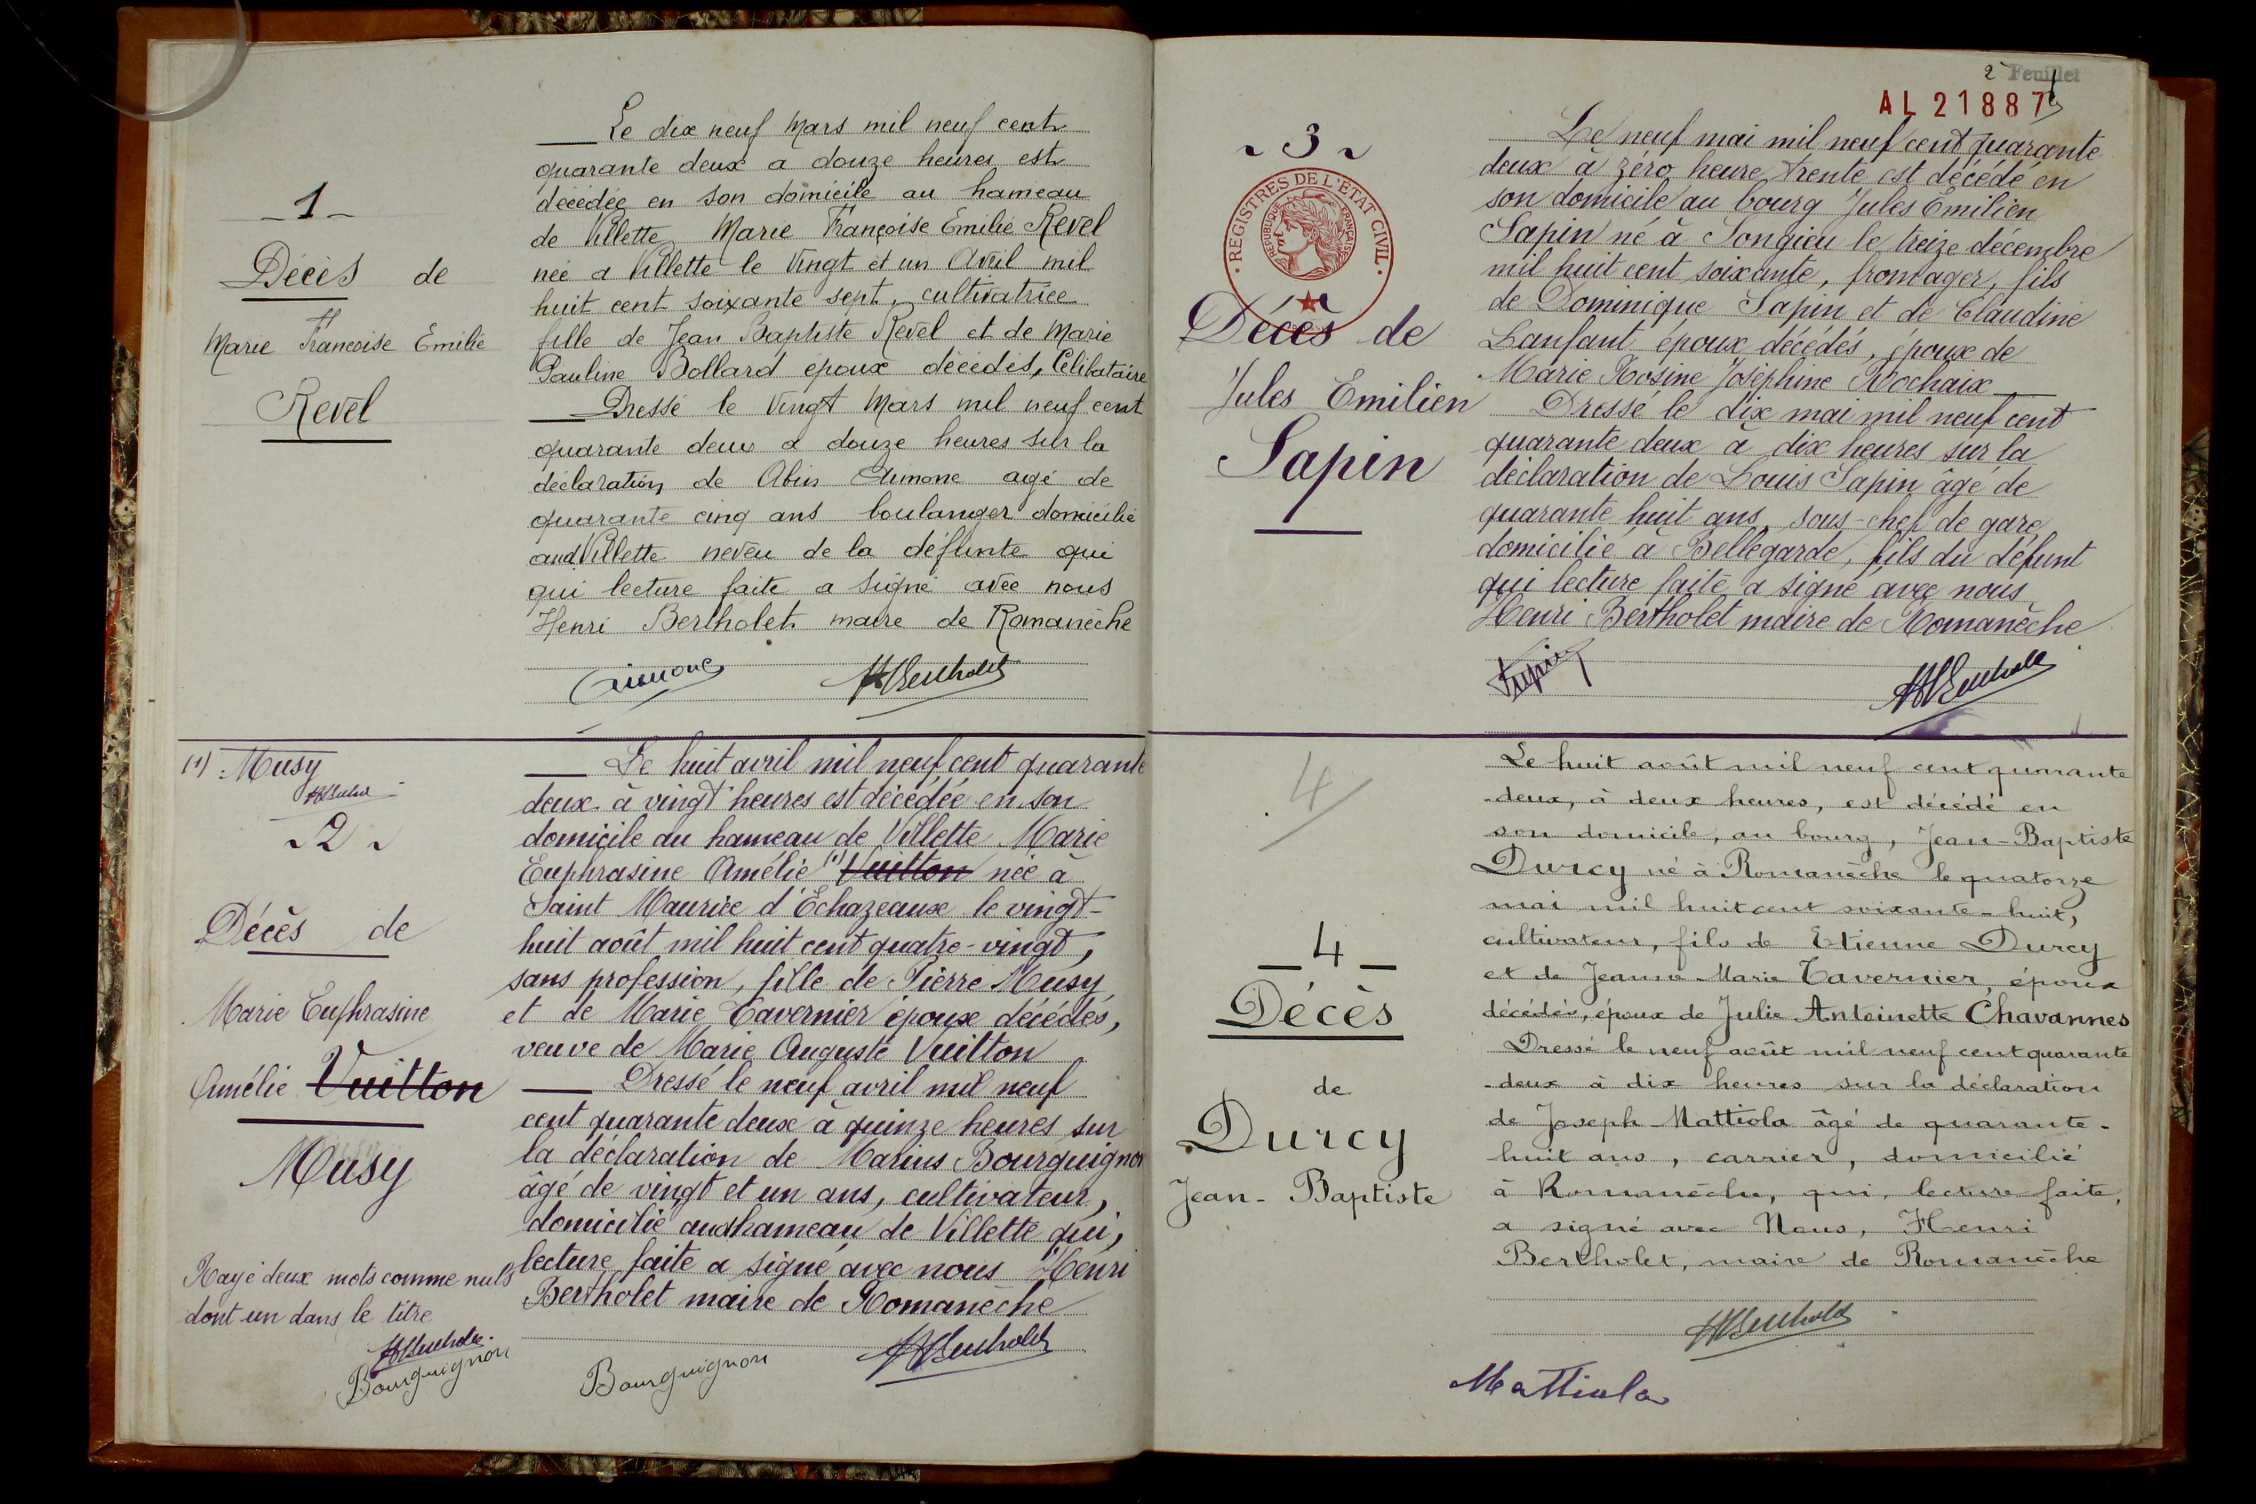 _1_
Décès de
Marie Françoise Emilie
Revel
Le dix neuf Mars mil neuf cent
quarante deux a douze heures est
décédée en son domicile au hameau
de Villette Marie Françoise Emilie Revel
née a Villette le Vingt et un Avril mil
huit cent soixante sept, cultivatrice
fille de Jean Baptiste Revel et de Marie
Pauline Bollard époux décédés, Célibataire
Dressé le Vingt Mars mil neuf cent
quarante deux a douze heures sur la
déclaration de Aimone agé de
quarante cinq ans boulanger domicilié
aud Villette neveu de la défunte qui
qui lecture faite a signé avec nous
Henri Bertholet maire de Romanèche
Aimone HBertholet
(1) Musy
HBertholet
2
Décès de
Marie Euphrasine
Amélie Vuitton
Musy
Rayé deux mots comme nuls
dont un dans le titre
HBertholet
Bourguignon
Le huit avril mil neuf cent quarante
deux à vingt heures est décédée en son
domicile au hameau de Villette Marie
Euphrasine Amélie (1) Vuitton née à
Saint Maurice d'Échazeaux le vingt-
huit août mil huit cent quatre-vingt,
sans profession, fille de Pierre Musy
et de Marie Tavernier époux décédés,
veuve de Marie Auguste Vuitton
Dressé le neuf avril mil neuf
cent quarante deux à quinze heures sur
la déclaration de Marius Bourguignon
âgé de vingt et un ans, cultivateur,
domicilié aud hameau de Villette qui,
lecture faite a signé avec nous Henri
Bertholet maire de Romanèche
Bourguignon HBertholet
2 Feuillet
AL 21887
3
REGISTRES DE L'ÉTAT CIVIL
RÉPUBLIQUE FRANÇAISE
Décès de
Jules Emilien
Sapin
Le neuf mai mil neuf cent quarante
deux a zéro heure trente est décédé en
son domicile au bourg Jules Emilien
Sapin né à Songieu le treize décembre
mil huit cent soixante, fromager, fils
de Dominique Sapin et de Claudine
Lanfant époux décédés, époux de
Marie Rosine Joséphine Rochaix
Dressé le dix mai mil neuf cent
quarante deux à dix heures sur la
déclaration de Louis Sapin âgé de
quarante huit ans, sous-chef de gare,
domicilié à Bellegarde, fils du défunt
qui lecture faite a signé avec nous
Henri Bertholet maire de Romanèche
Sapin HBertholet
4
_4_
Décès
de
Durcy
Jean-Baptiste
Le huit août mil neuf cent quarante
-deux, à deux heures, est décédé en
son domicile, au bourg, Jean-Baptiste
Durcy né à Romanèche le quatorze
mai mil huit cent soixante-huit,
cultivateur, fils de Etienne Durcy
et de Jeanne-Marie Tavernier, époux
décédés, époux de Julie Antoinette Chavannes
Dressé le neuf août mil neuf cent quarante
-deux à dix heures sur la déclaration
de Joseph Mattiola âgé de quarante-
huit ans, carrier, domicilié
à Romanèche, qui, lecture faite,
a signé avec Nous, Henri
Bertholet, maire de Romanèche
HBertholet
Mattiola